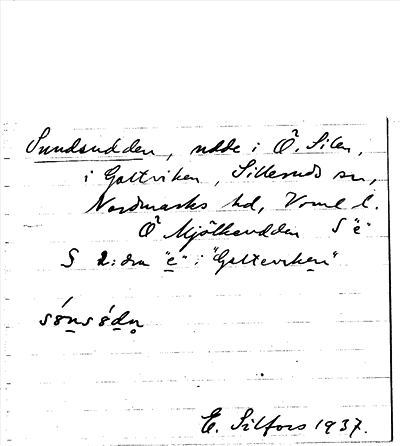 Sundsudden, udde i Ö. Silen,
i Galtviken, Silleruds sn,
Nordmarks hd, Vrml l.
Ö Mjölkeudden S "e"
S 2:dra "e" i "Galteviken"
E. Silfors 1937.